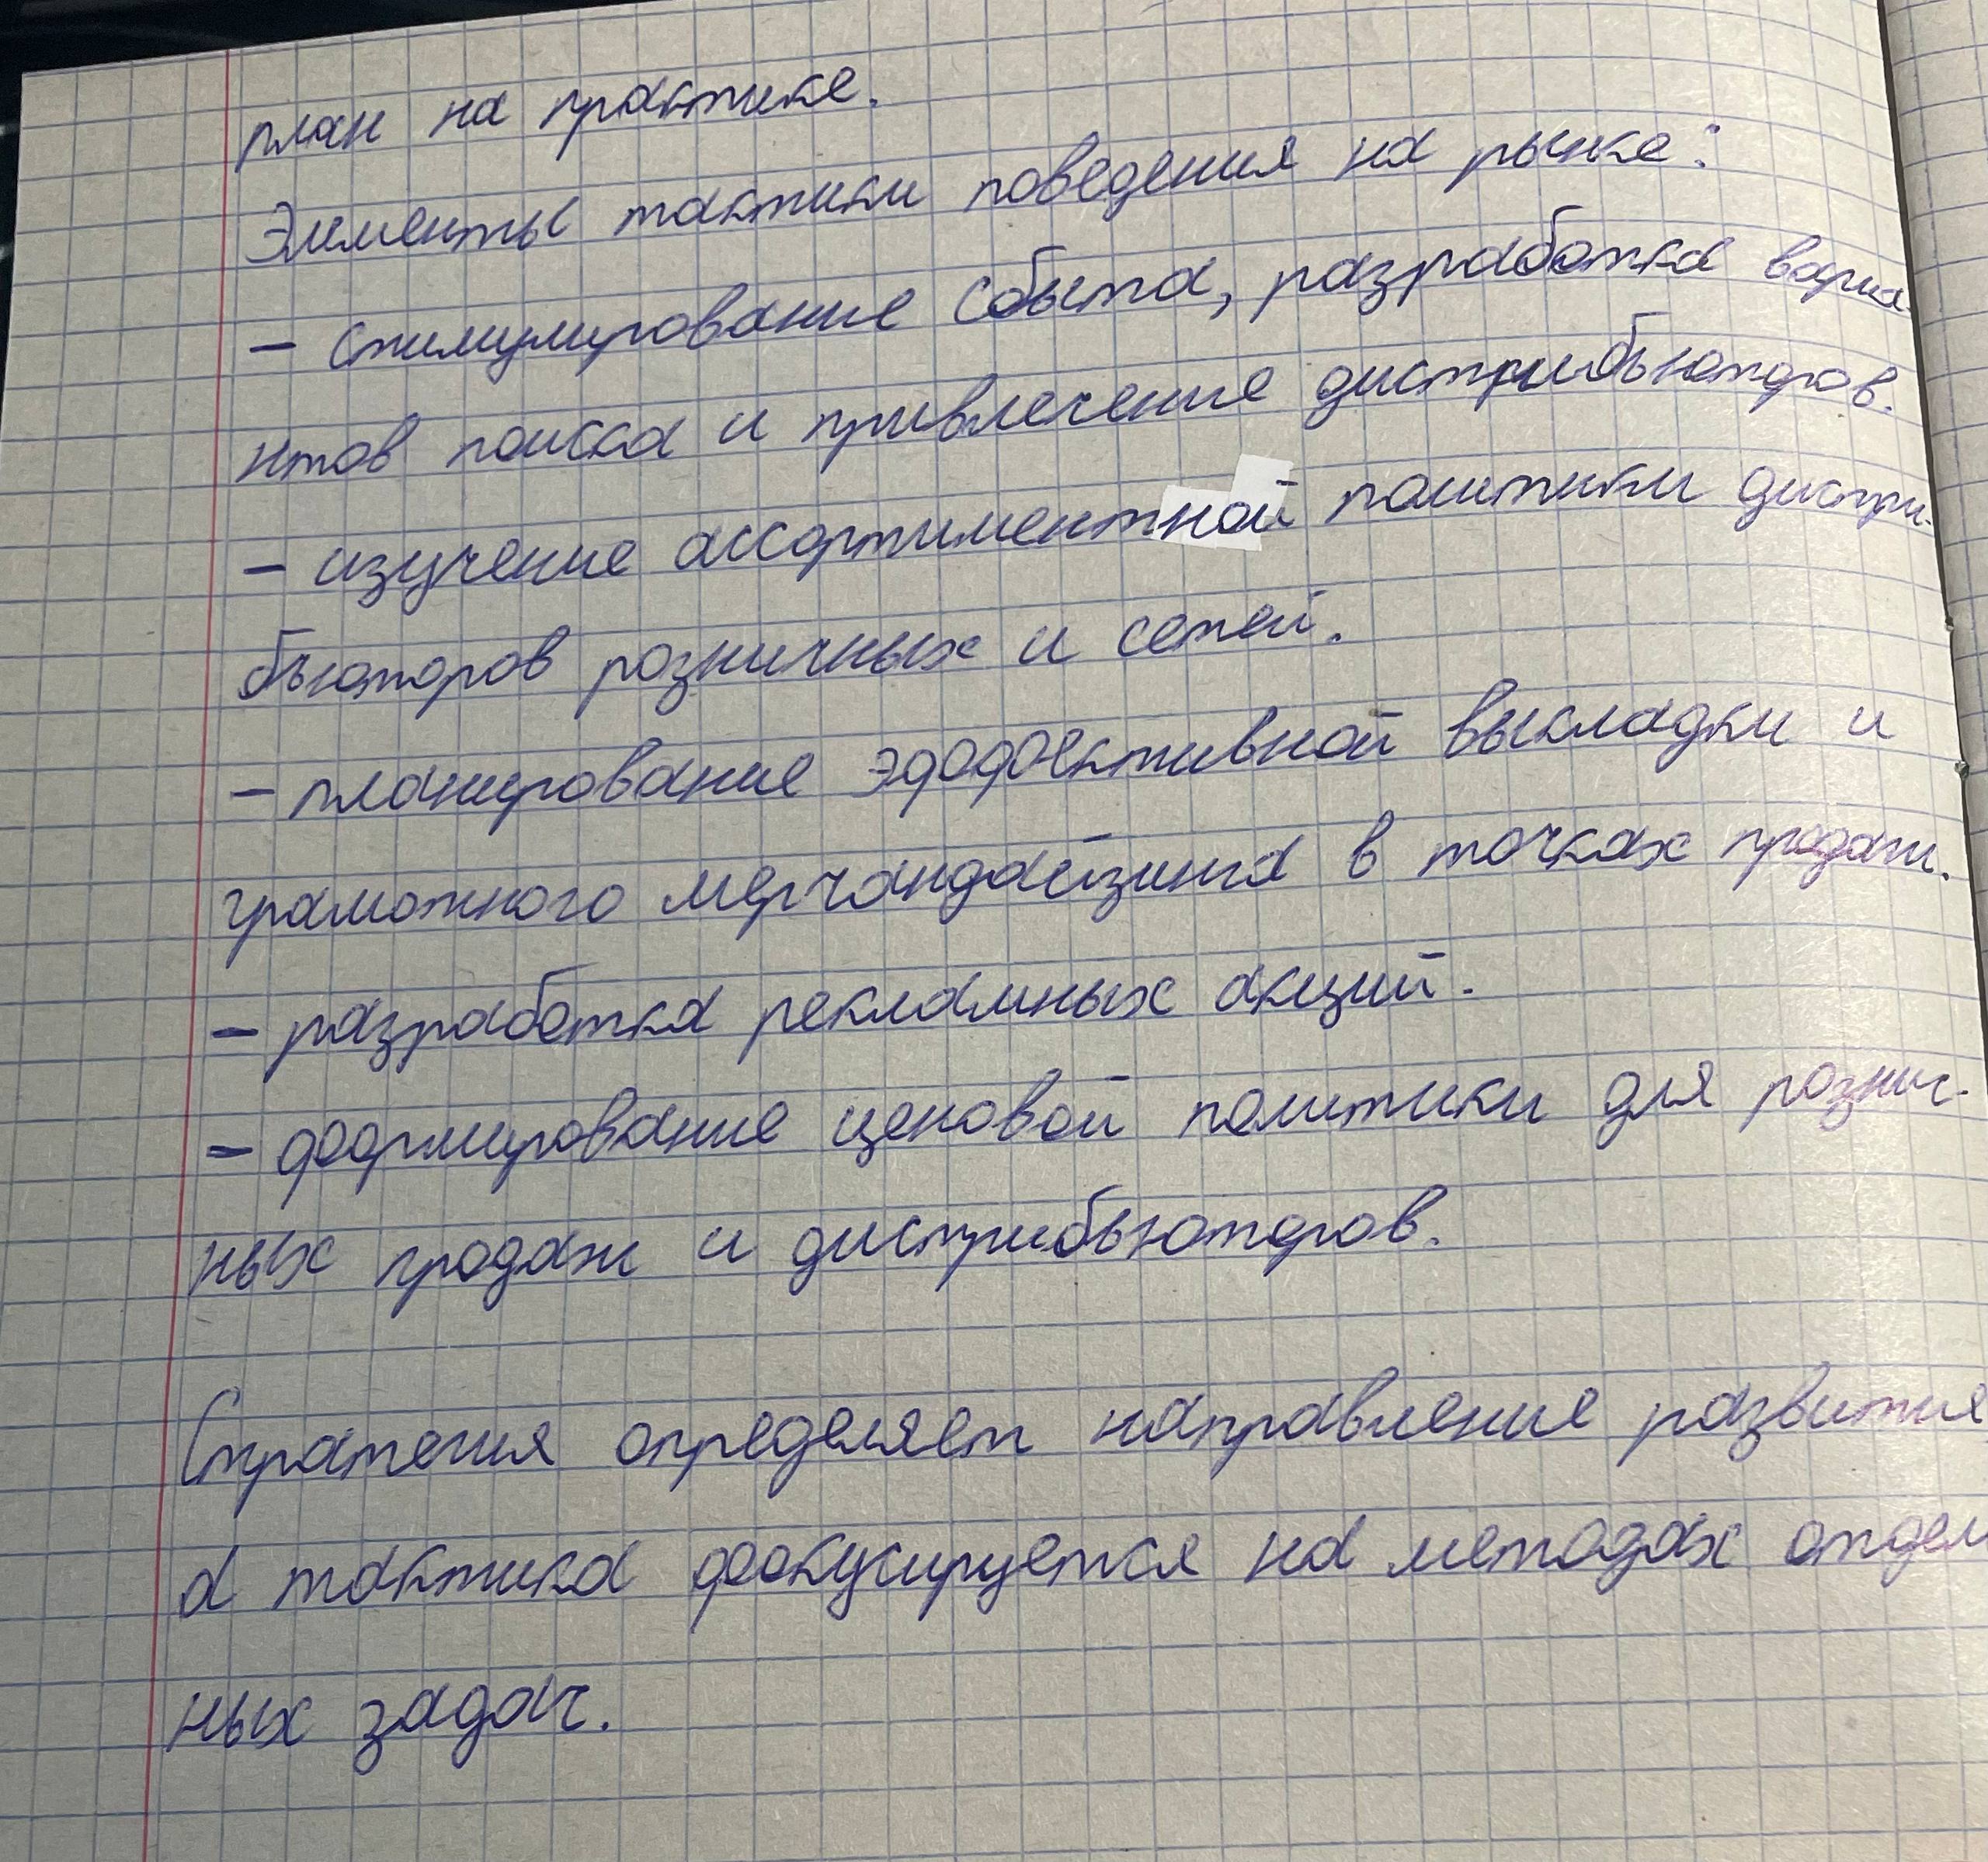 план на практике.
Элементы тактики поведения на рынке:
- стимулирование сбыта, разработка вариа-
нтов поиска и привлечение дистрибьюторов.
- изучение ассортиментной политики дистри-
бьюторов розничных и сетей.
- планирование эффективной выкладки и
грамотного мерчандайзинга в точках продаж.
- разработка рекламных акций.
- формирование ценовой политики для рознич-
ных продаж и дистрибьюторов.
Стратегия определяет направление развития
а тактика фокусируется на методах отдел
ных задач.